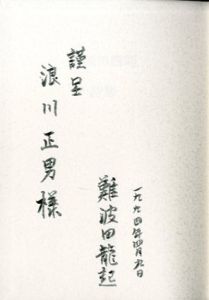 謹呈
浪川正男様
難波田龍起
一九九四年四月九日